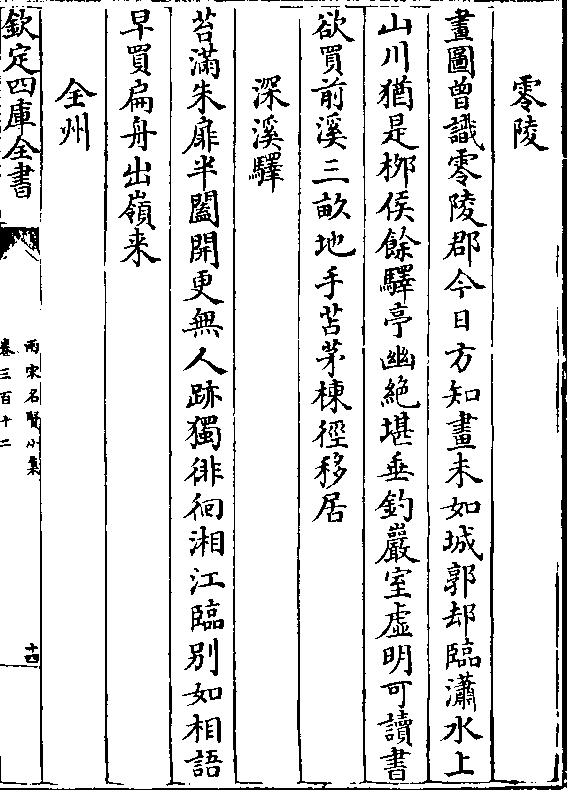 零陵
畫圖曾識零陵郡今日方知畫未如城郭却臨瀟水上
山川猶是栁侯餘驛亭幽絶堪垂釣巖室虚明可讀書
欲買前溪三畝地手苫茅棟徑移居
深溪驛
苔滿朱扉半闔開更無人跡獨徘徊湘江臨别如相語
早買扁舟出嶺来
全州
欽定四庫全書
兩宋名賢小集
卷三百十二
十四